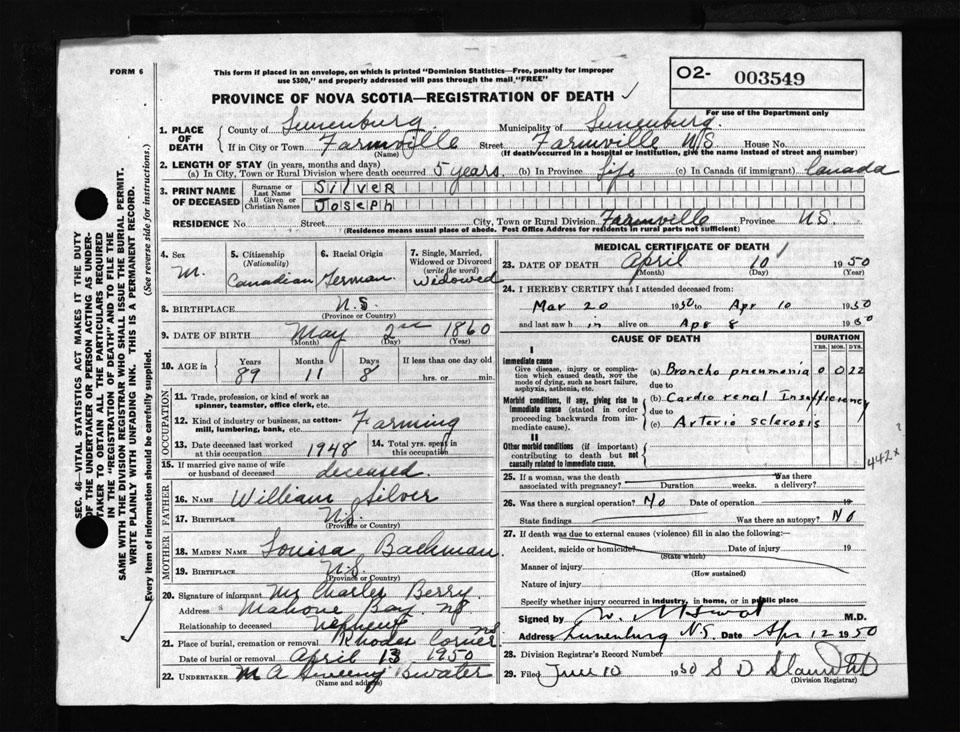 FORM 6
This form if placed in an envelope, on which is printed "Dominion Statistics—Free, penalty for improper
use $300," and properly addressed will pass through the mail "FREE"
O2- 003549
For use of the Department only
PROVINCE OF NOVA SCOTIA—REGISTRATION OF DEATH
1. PLACE OF DEATH
County of Lunenburg Municipality of Lunenburg
If in City or Town Farmville Street Farmville N/S House No.
(Name) (If death occurred in a hospital or institution, give the name instead of street and number)
2. LENGTH OF STAY (in years, months and days)
(a) In City, Town or Rural Division where death occurred 5 years (b) In Province Life (c) In Canada (if immigrant) Canada
3. PRINT NAME OF DECEASED
Surname or Last Name SILVER
All Given or Christian Names JOSEPH
RESIDENCE No. Street City, Town or Rural Division Farmville Province N.S.
(Residence means usual place of abode. Post Office Address for residents in rural parts not sufficient)
4. Sex M.
5. Citizenship (Nationality) Canadian
6. Racial Origin German
7. Single, Married, Widowed or Divorced (write the word) Widowed
8. BIRTHPLACE N.S.
(Province or Country)
9. DATE OF BIRTH May 2nd 1860
(Month) (Day) (Year)
10. AGE in Years 89 Months 11 Days 8 If less than one day old hrs. or min.
OCCUPATION
11. Trade, profession, or kind of work as spinner, teamster, office clerk, etc.
12. Kind of industry or business, as cotton-mill, lumbering, bank, etc. Farming
13. Date deceased last worked at this occupation 1948
14. Total yrs. spent in this occupation
15. If married give name of wife or husband of deceased deceased
FATHER
16. NAME William Silver
17. BIRTHPLACE N.S.
(Province or Country)
MOTHER
18. MAIDEN NAME Louisa Bachman
19. BIRTHPLACE N.S.
(Province or Country)
20. Signature of informant Mr Charles Berry
Address Mahone Bay NS
Relationship to deceased Nephew
21. Place of burial, cremation or removal Rhodes Corner NS
Date of burial or removal April 13 1950
22. UNDERTAKER M A Sweeny Bwater
(Name and address)
MEDICAL CERTIFICATE OF DEATH
23. DATE OF DEATH April 10 1950
(Month) (Day) (Year)
24. I HEREBY CERTIFY that I attended deceased from:
Mar 20 1950 to Apr 10 1950
and last saw h im alive on Apr 8 1950
CAUSE OF DEATH DURATION
YRS. MOS. DYS.
I
Immediate cause
Give disease, injury or complication which caused death, NOT the mode of dying, such as heart failure, asphyxia, asthenia, etc.
(a) Broncho pneumonia 0 0 22
due to
Morbid conditions, if any, giving rise to immediate cause (stated in order proceeding backwards from immediate cause).
(b) Cardio renal Insufficiency
due to
(c) Arterio sclerosis
II
Other morbid conditions (if important) contributing to death but not causally related to immediate cause.
442x
25. If a woman, was the death associated with pregnancy? Duration weeks. Was there a delivery?
26. Was there a surgical operation? NO Date of operation 19
State findings Was there an autopsy? NO
27. If death was due to external causes (violence) fill in also the following:—
Accident, suicide or homicide? Date of injury 19
(State which)
Manner of injury
(How sustained)
Nature of injury
Specify whether injury occurred in industry, in home, or in public place
Signed by M.D.
Address Lunenburg N.S. Date Apr 12 1950
28. Division Registrar's Record Number
29. Filed June 10 1950 S D
(Division Registrar)
SEC. 46—VITAL STATISTICS ACT MAKES IT THE DUTY
OF THE UNDERTAKER OR PERSON ACTING AS UNDER-
TAKER TO OBTAIN ALL THE PARTICULARS REQUIRED
IN THE "REGISTRATION OF DEATH" AND TO FILE THE
SAME WITH THE DIVISION REGISTRAR WHO SHALL ISSUE THE BURIAL PERMIT.
WRITE PLAINLY WITH UNFADING INK. THIS IS A PERMANENT RECORD.
Every item of information should be carefully supplied. (See reverse side for instructions.)